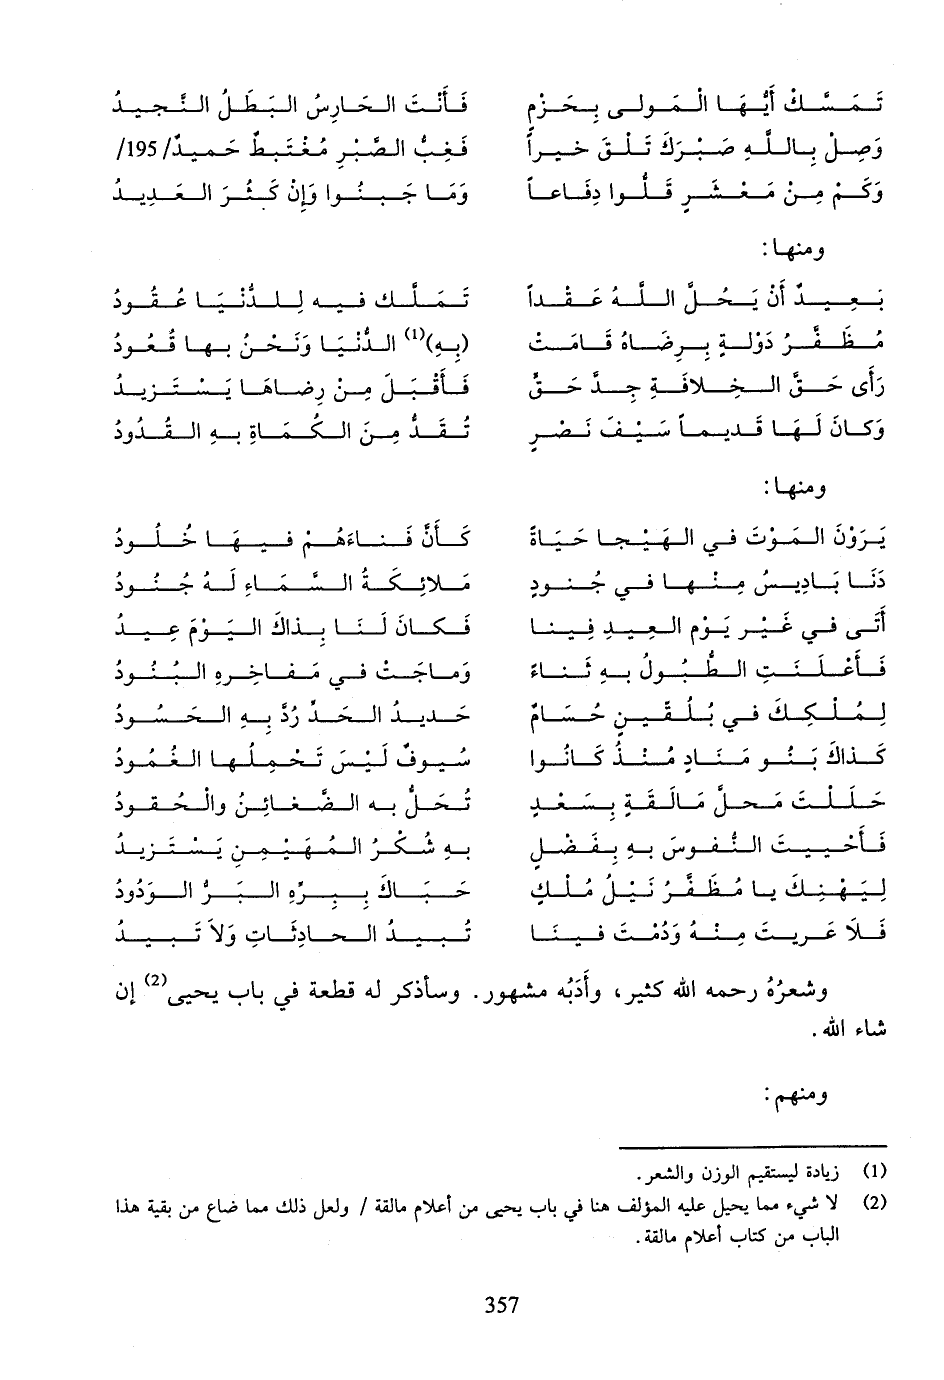 تَمَسَّكْ أَيُّهَا الْمَوْلَى بِحَزْمٍ فَأَنْتَ الحَارِسُ الْيَقِظُ النَّجِيدُ
وَصِلْ بِاللَّهِ صَبْرَكَ تَلْقَ خَيْراً فَغِبُّ الصَّبْرِ مُغْتَبَطٌ حَمِيدُ /195/
وَكَمْ مِنْ مَعْشَرٍ قَلُّوا دِفَاعاً وَمَا جَبَنُوا وَإِنْ كَثُرَ الْعَدِيدُ
ومنها :
يَمِيدُ أَنْ يَحُلَّ اللَّهُ عَقْداً تَمَلَّكَ فِيهِ لِلدُّنْيَا عُقُودُ
مُظَفَّرُ دَوْلَةٍ بِرِضَاهُ قَامَتْ (بِهِ)(1) الدُّنْيَا وَنَحْنُ بِهَا قُعُودُ
رَأَى حَقَّ الْخِلَافَةِ جِدَّ حَقٍّ فَأَقْبَلَ مِنْ رِضَاهَا يَسْتَزِيدُ
وَكَانَ لَهَا قَدِيماً سَيْفَ نَصْرٍ تُقَدُّ مِنَ الْكُمَاةِ بِهِ الْقُدُودُ
ومنها :
يَرَوْنَ الْمَوْتَ فِي الْهَيْجَا حَيَاةً كَأَنَّ فَنَاءَهُمْ فِيهَا خُلُودُ
دَنَا بَادِيسُ مِنْهَا فِي جُنُودٍ مَلَائِكَةُ السَّمَاءِ لَهُ جُنُودُ
أَتَى فِي غَيْرِ يَوْمِ الْعِيدِ فِينَا فَكَانَ لَنَا بِذَاكَ الْيَوْمِ عِيدُ
فَأَعْلَنَتِ الطُّبُولُ بِهِ ثَنَاءً وَمَاجَتْ فِي مَفَاخِرِهِ الْبُنُودُ
لِمُلْكِكَ فِي يَلَقِّينَ حُسَامٌ حَدِيدُ الْحَدِّ رُدَّ بِهِ الْحَسُودُ
كَذَاكَ بَنُو مَنَادٍ مُنْذُ كَانُوا سُيُوفٌ لَيْسَ تَحْمِلُهَا الْغُمُودُ
حَلَلْتَ مَحَلَّ مَالَقَةٍ بِسَعْدٍ تُحَلُّ بِهِ الضَّغَائِنُ وَالْحُقُودُ
فَأَحْيَيْتَ النُّفُوسَ بِهِ بِفَضْلٍ بِهِ شُكْرُ الْمُهَيْمِنِ يَسْتَزِيدُ
لِيَهْنِكَ يَا مُظَفَّرُ نَيْلُ مُلْكٍ حَبَاكَ بِبِرِّهِ الْبَرُّ الْوَدُودُ
فَلَا عَرِيَتْ مِنْهُ وَدُمْتَ فِينَا تُبِيدُ الْحَادِثَاتِ وَلَا تَبِيدُ
وشعرُهُ رحمه الله كثير، وأَدَبُه مشهور . وسأذكر له قطعة في باب يحيى(2) إن
شاء الله .
ومنهم :
(1) زيادة ليستقيم الوزن والشعر .
(2) لا شيء مما يحيل عليه المؤلف هنا في باب يحيى من أعلام مالقة / ولعل ذلك مما ضاع من بقية هذا
الباب من كتاب أعلام مالقة .
357